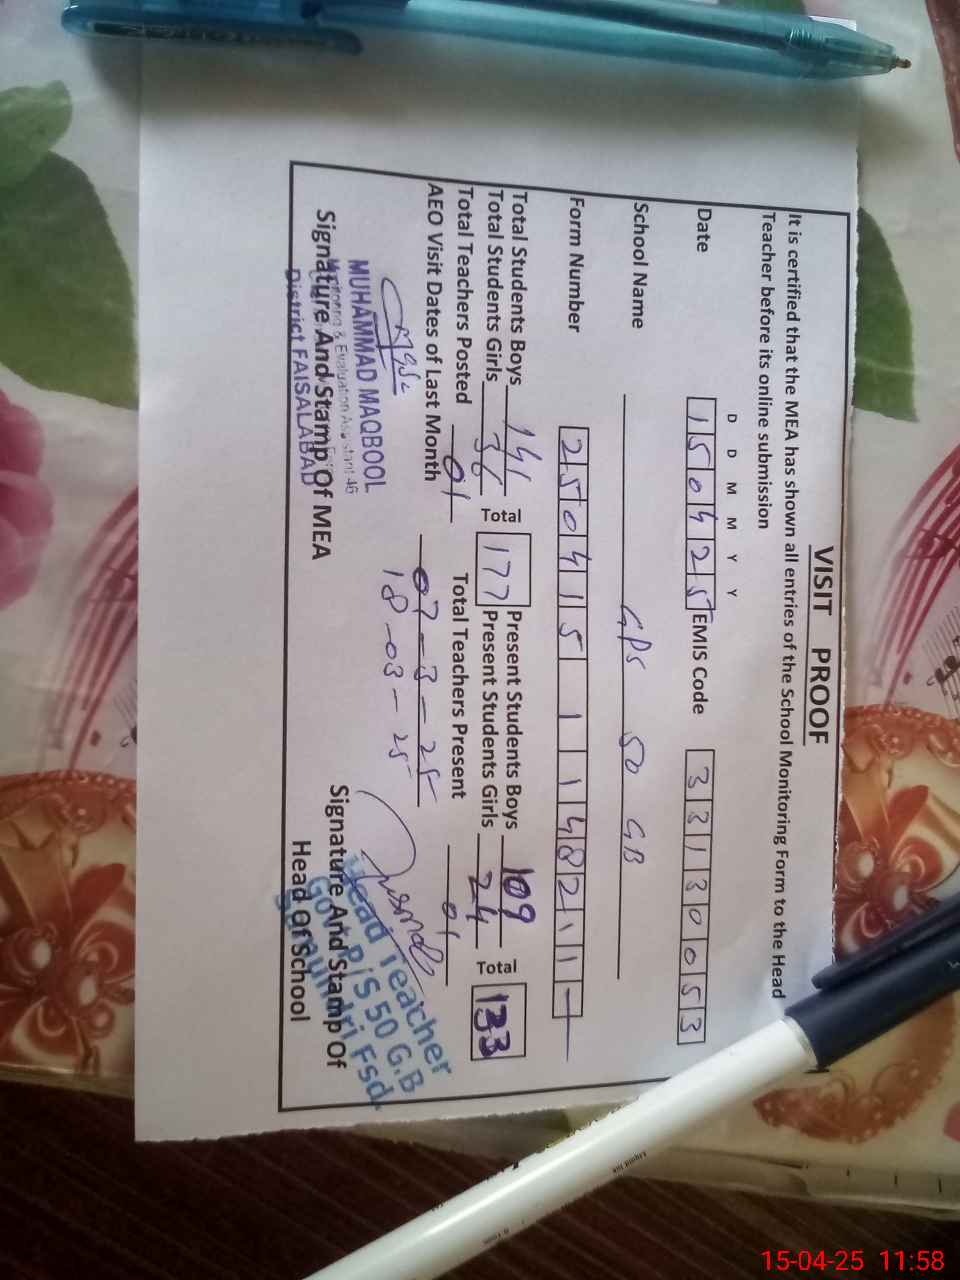 VISIT PROOF
It is certified that the MEA has shown all entries of the School Monitoring Form to the Head
Teacher before its online submission
D D M M Y Y
Date 150425 EMIS Code 33130053
School Name GPS 50 GB
Form Number 250415 1 148211
Total Students Boys 141 Present Students Boys 109
Total Students Girls 36 Total 177 Present Students Girls 24 Total 133
Total Teachers Posted 01 Total Teachers Present 01
AEO Visit Dates of Last Month 07-3-25
18-03-25
MUHAMMAD MAQBOOL
Monitoring & Evaluation Assistant 46
District FAISALABAD
Signature And Stamp Of MEA
Head Teacher
50 G.B
Fsd.
Signature And Stamp Of
Head Of School
15-04-25 11:58